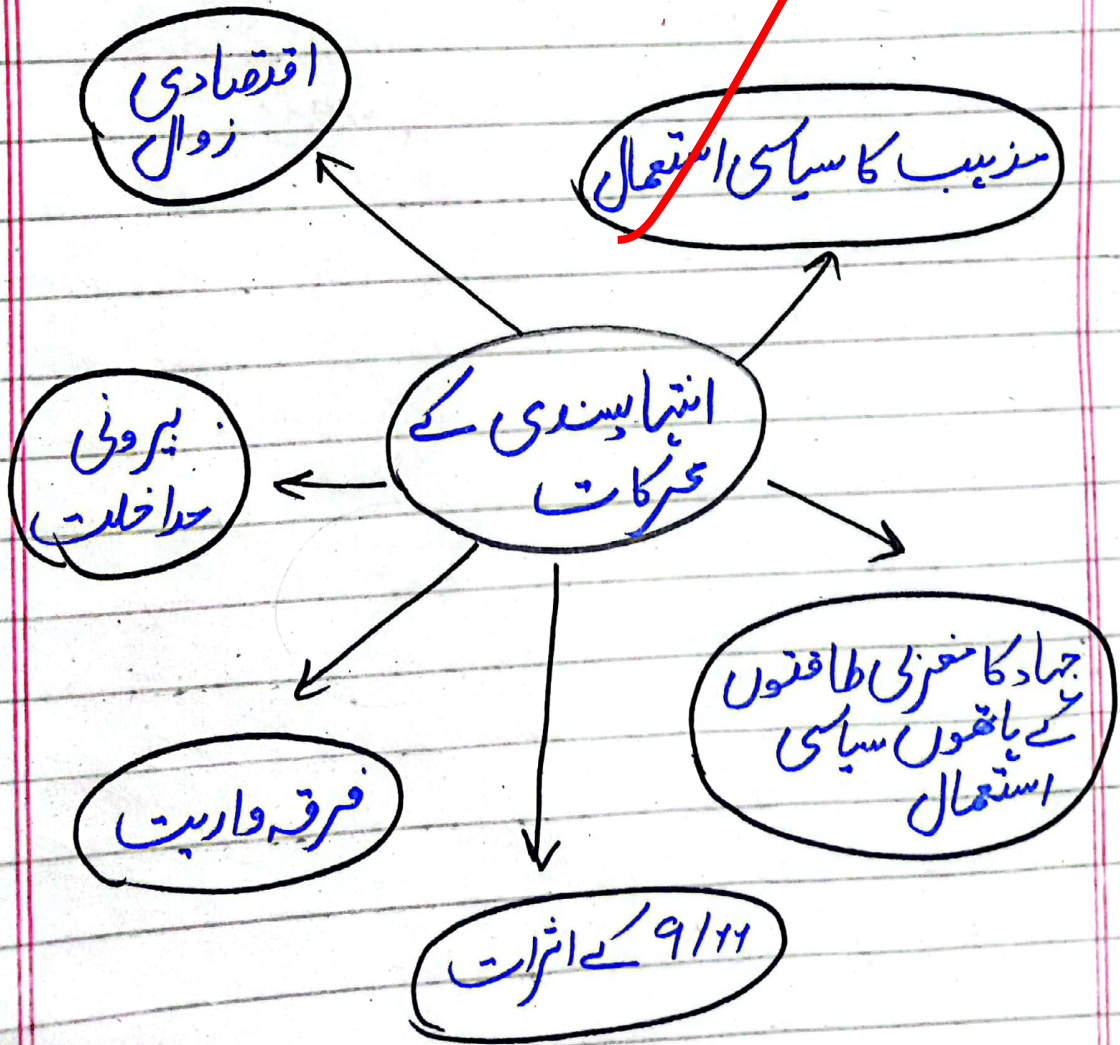 اقتصادی
زوال
مذہب کا سیاسی استعمال
انتہا پسندی کے
محرکات
بیرونی
مداخلت
جہاد کا مغربی طاقتوں
کے ہاتھوں سیاسی
استعمال
فرقہ واریت
9/11 کے اثرات